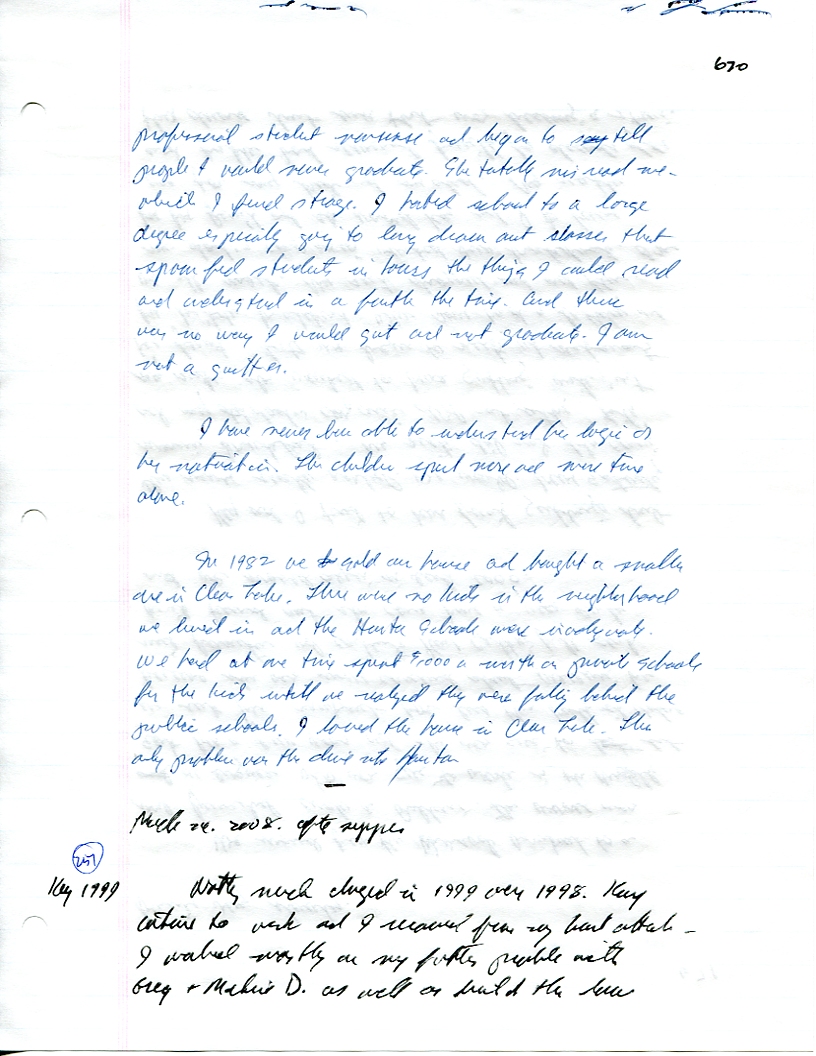 670
professional student nonsense and began to say tell
people I would never graduate. She totally misread me -
which I find strange. I hated school to a large
degree especially going to long drawn out classes that
spoon fed students in hours the things I could read
and understand in a fourth the time. And there
was no way I would quit and not graduate. I am
not a quitter.
I have never been able to understand her logic or
her motivation. The children spent more and more time
alone.
In 1982 we sold our house and bought a smaller
one in Clear Lake. There were no kids in the neighborhood
we lived in and the Houston Schools were inadequate.
We had at one time spent $1,000 a month on private schools
for the kids until we realized they were falling behind the
public schools. I loved the house in Clear Lake. The
only problem was the drive into Houston
—
March 24. 2008. after supper
257
Kay 1999
Nothing much changed in 1999 over 1998. Kay
continued to work and I recovered from my heart attack -
I worked mostly on my father's problem with
Greg + D. as well as build the law